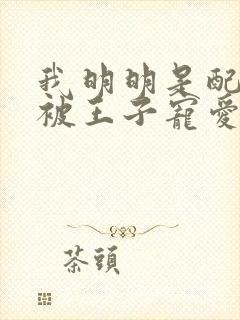 我明明是配
被王子寵愛
茶頭